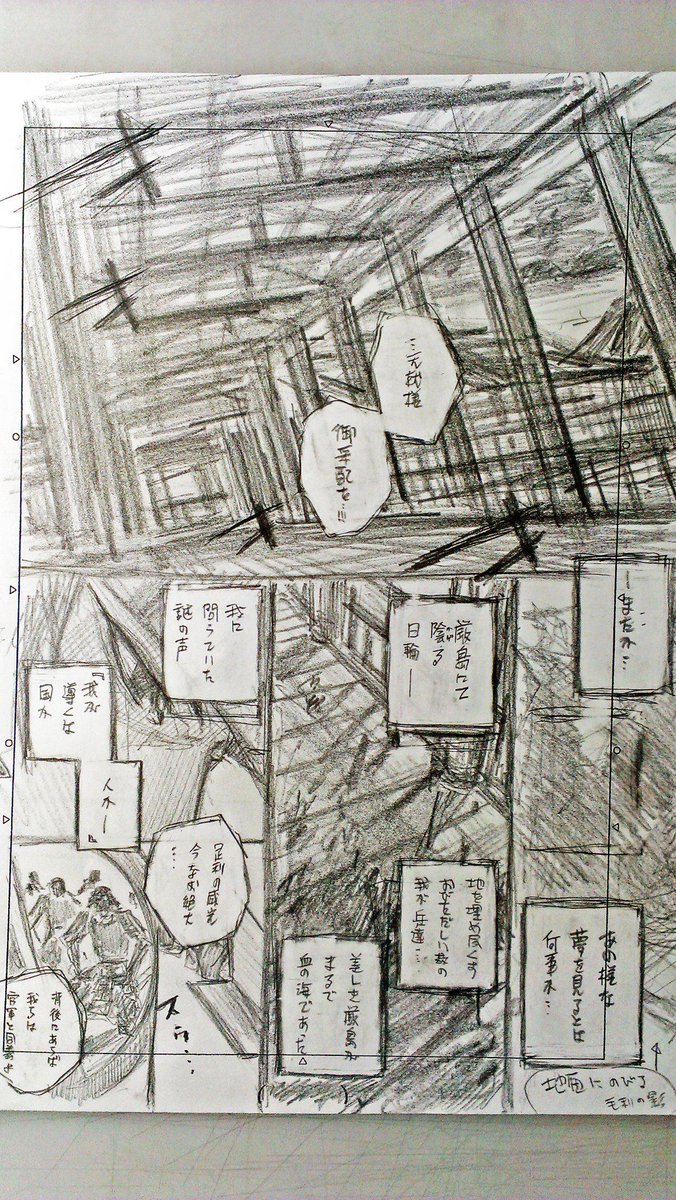 …元就様
御采配を…!!
―またか…
あの様な
夢を見るとは
何事か…
厳島にて
陰る
日輪―
地を埋め尽くす
おびただしい数の
我が兵達…
美しき厳島が
まるで
血の海であった
我に
問うていた
謎の声
『我が
導くは
国か
人か―
足利の威光
今なお絶大
…
背後にあらば
我らは
官軍と同義よ
地面にのびる
毛利の影